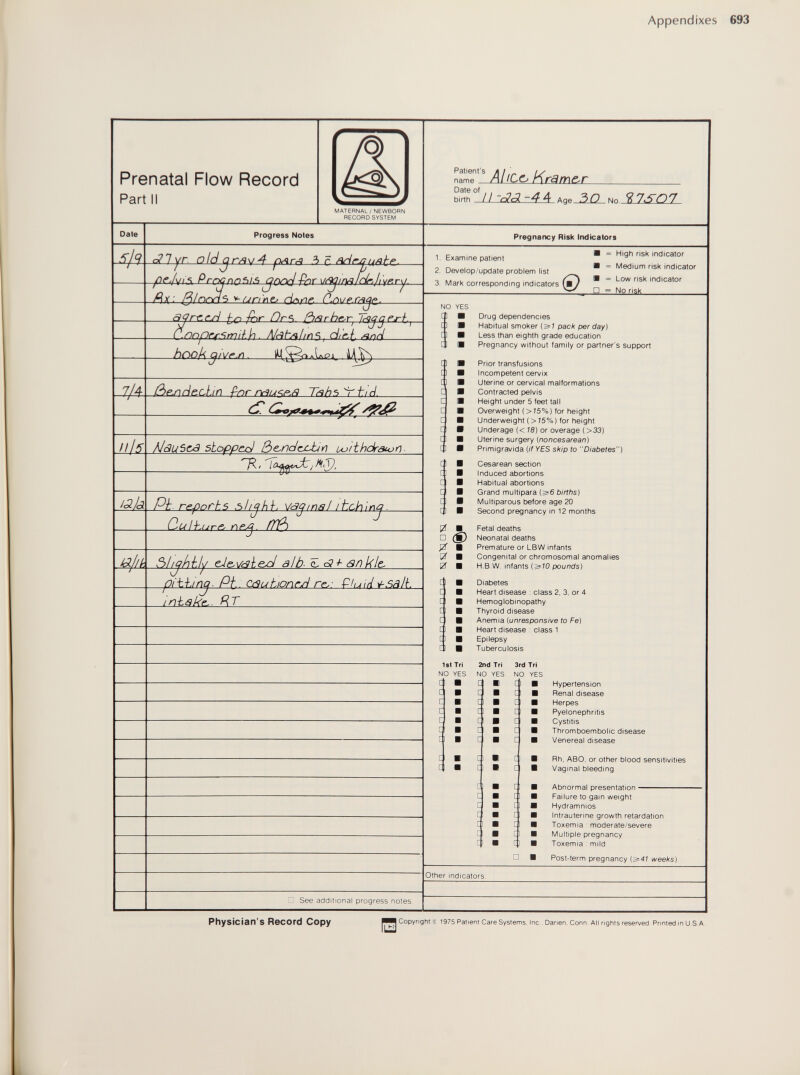 Appendixes 693
Prenatal Flow Record
Part II
MATERNAL / NEWBORN
RECORD SYSTEM
Patient's
name Alice Kramer
Date of
birth 11-22-44 Age 30 No. 87507
Date Progress Notes
5/9 27 yr. old grav 4 para 3 c̄ adequate
pelvis. Prognosis good for vaginal delivery.
Rx: Bloods + urine done. Coverage
agreed to for Drs. Barber, Taggert,
Coopersmith. Natalins, diet and
book given. M. Barber MD
7/4 Bendectin for nausea Tabs † tid.
C. Coopersmith, MD
11/5 Nausea stopped Bendectin withdrawn.
R. Taggert, M.D.
12/2 Pt. reports slight vaginal itching.
Culture neg. MB
12/16 Slightly elevated alb. c̄ 2+ ankle
pitting. Pt. cautioned re: fluid + salt
intake. RT
□ See additional progress notes
Pregnancy Risk Indicators
1. Examine patient
2. Develop/update problem list
3. Mark corresponding indicators
■ = High risk indicator
■ = Medium risk indicator
■ = Low risk indicator
□ = No risk
NO YES
Drug dependencies
Habitual smoker (≥1 pack per day)
Less than eighth grade education
Pregnancy without family or partner's support
Prior transfusions
Incompetent cervix
Uterine or cervical malformations
Contracted pelvis
Height under 5 feet tall
Overweight (>15%) for height
Underweight (>15%) for height
Underage (<18) or overage (>33)
Uterine surgery (noncesarean)
Primigravida (if YES skip to "Diabetes")
Cesarean section
Induced abortions
Habitual abortions
Grand multipara (≥6 births)
Multiparous before age 20
Second pregnancy in 12 months
Fetal deaths
Neonatal deaths
Premature or LBW infants
Congenital or chromosomal anomalies
H.B.W. infants (≥10 pounds)
Diabetes
Heart disease : class 2, 3, or 4
Hemoglobinopathy
Thyroid disease
Anemia (unresponsive to Fe)
Heart disease : class 1
Epilepsy
Tuberculosis
1st Tri 2nd Tri 3rd Tri
NO YES NO YES NO YES
Hypertension
Renal disease
Herpes
Pyelonephritis
Cystitis
Thromboembolic disease
Venereal disease
Rh, ABO, or other blood sensitivities
Vaginal bleeding
Abnormal presentation
Failure to gain weight
Hydramnios
Intrauterine growth retardation
Toxemia : moderate/severe
Multiple pregnancy
Toxemia : mild
Post-term pregnancy (≥41 weeks)
Other indicators:
Physician's Record Copy
Copyright © 1975 Patient Care Systems, Inc., Darien, Conn. All rights reserved. Printed in U.S.A.